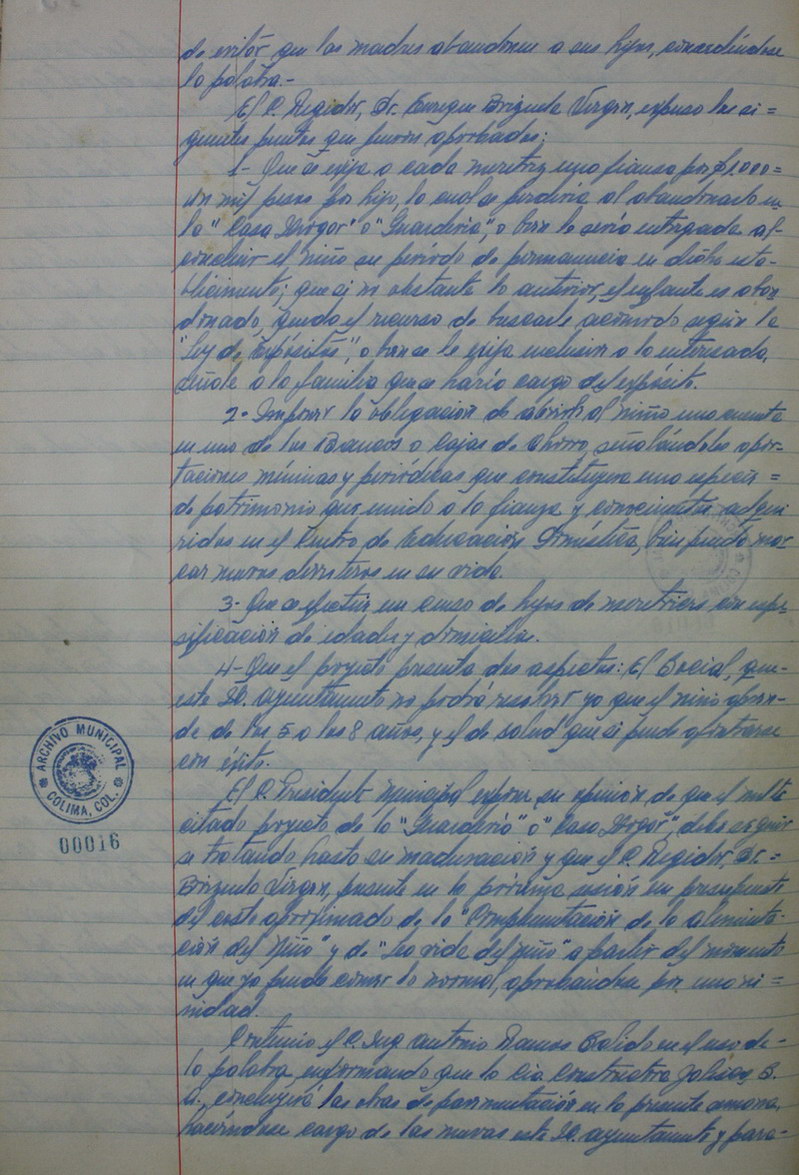 de evitar que las madres abandonen a sus hijos, concediéndose
la palabra.-
El C. Regidor, Dr. Enrique Brizuela Virgen, expuso los si=
guientes puntos que fueron aprobados:
1- Que se exija a cada meretriz una fianza por $1,000=
un mil pesos por hijo, la cual se perdería al abandonarlo en
la "Casa Hogar" o "Guardería", o bien le sería entregada al-
concluir el niño su período de permanencia en dicho esta-
blecimiento; que si no obstante lo anterior, el infante es aban
donado, queda el recurso de buscarle acomodo según la
"Ley de Expósitos", o bien se le exija inclusive a la interesada,
señale a la familia que se haría cargo del expósito.
2- Imponer la obligación de abrirle al niño una cuenta
en uno de los Bancos o Cajas de Ahorro, señalándoles apor-
taciones mínimas y periódicas que constituyera una especie=
de patrimonio que unido a la fianza y conocimientos adqui
ridos en el Centro de Educación Doméstica, bien puede mar-
car nuevos derroteros en su vida.
3- Que se efectúe un censo de hijos de meretrices con espe
sificación de edades y domicilios.
4- Que el proyecto presenta dos aspectos: El Social, que-
este H. Ayuntamiento no podrá resolver ya que el niño apren-
de de los 5 a los 8 años, y el de salud que si puede afrontarse
con éxito.
El C. Presidente Municipal expone su opinión de que el multi
citado proyecto de la "Guardería" o "Casa Hogar", debe seguir
se tratando hasta su maduración y que el C. Regidor, Dr.=
Brizuela Virgen, presente en la próxima sesión un presupuesto
del costo aproximado de la "Complementación de la alimenta-
ción del Niño" y de "La vida del niño" a partir del momento
en que ya puede comer lo normal, aprobándose por unani=
midad.
Continúo el C. Ing. Antonio Ramos Salido en el uso de-
la palabra, informando que la Cía. Constructora Jalisco, S.
A. concluyirá las obras de pavimentación en la presente semana,
haciéndose cargo de las nuevas este H. Ayuntamiento y para-
ARCHIVO MUNICIPAL
COLIMA, COL.
00016